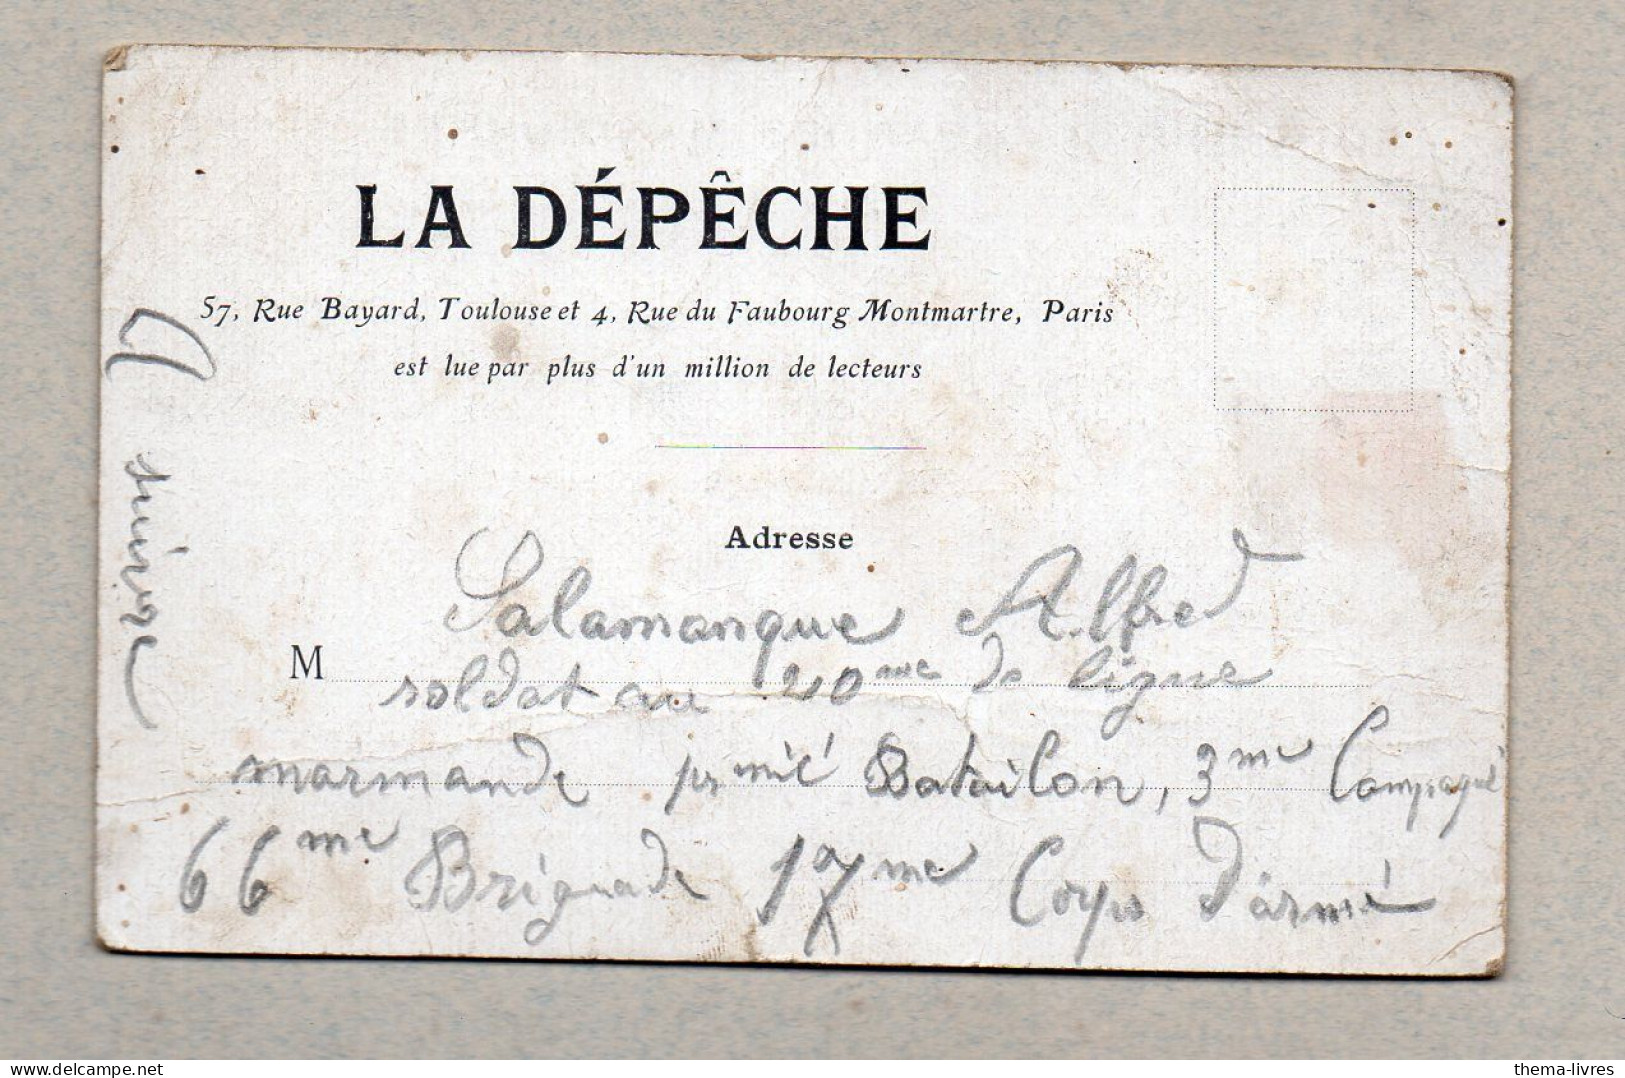 LA DÉPÊCHE
57, Rue Bayard, Toulouse et 4, Rue du Faubourg Montmartre, Paris
est lue par plus d'un million de lecteurs
Adresse
M Salamanque Alfred
soldat au 20me de ligne
marmande Batailon, 3me Compagné
66me Briguade 17me Corps D'armé
suivre
delcampe.net
thema-livres